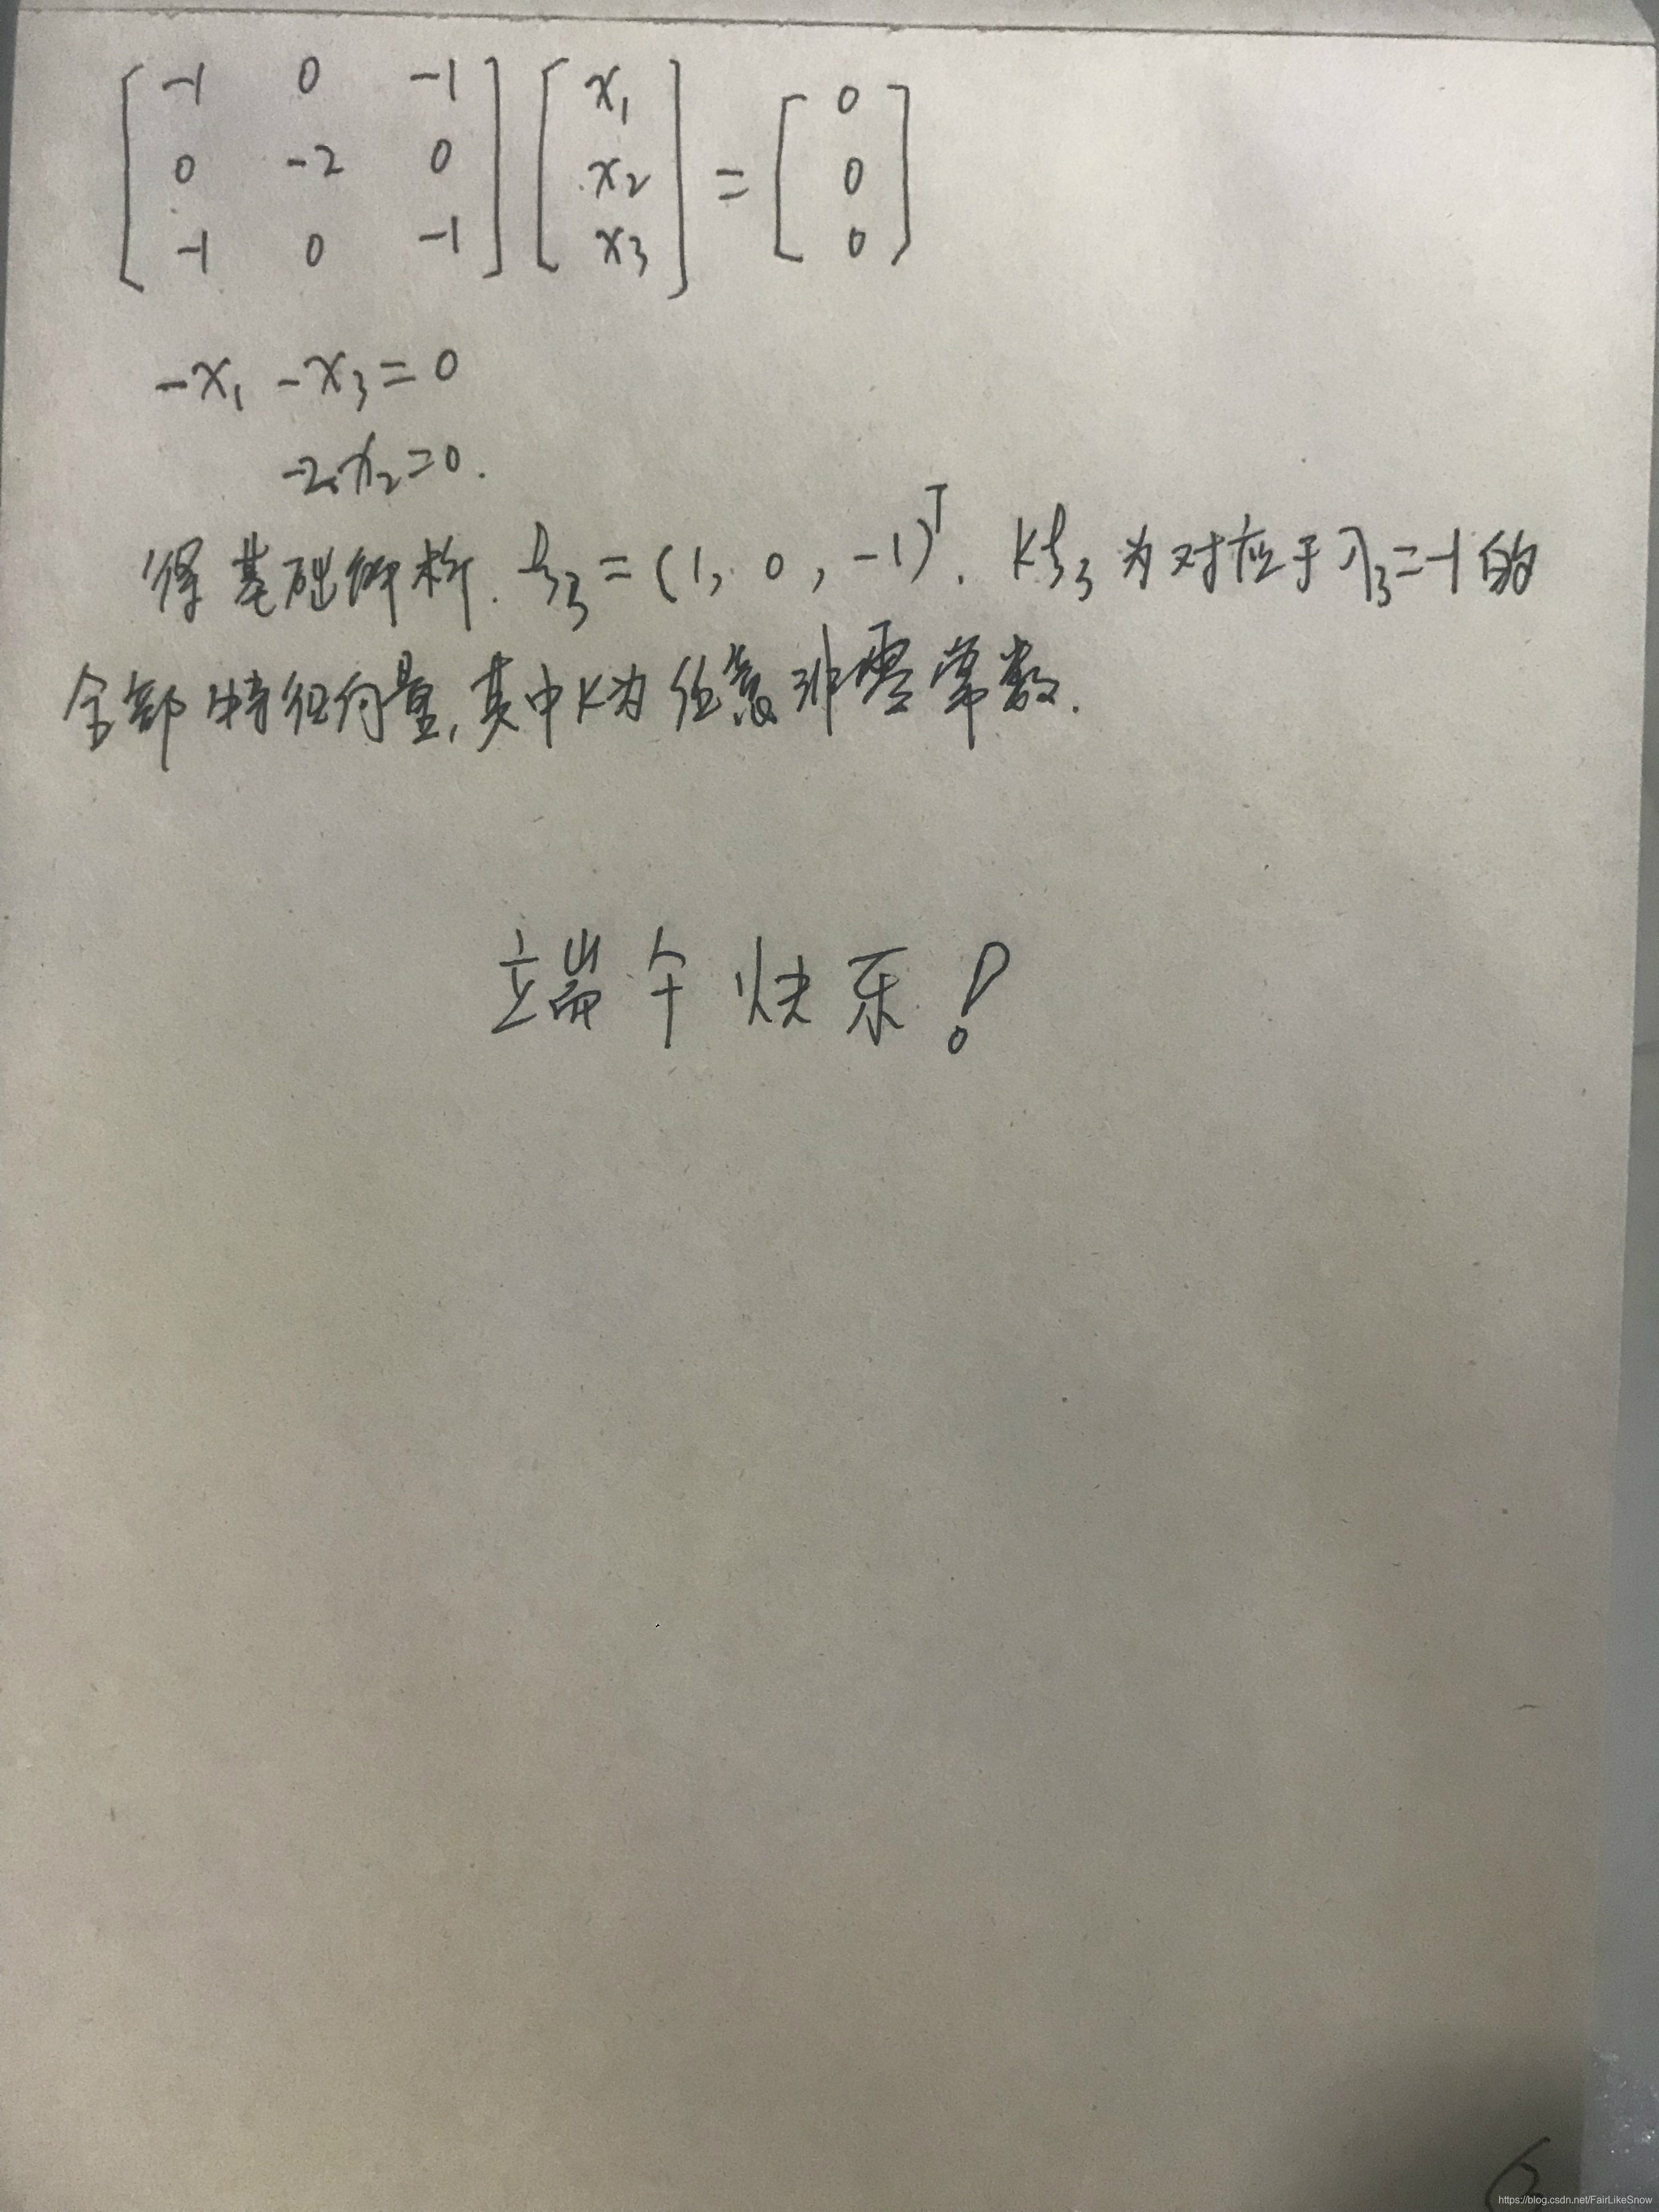 [ -1 0 -1 ] [ x₁ ] = [ 0 ]
[ 0 -2 0 ] [ x₂ ] [ 0 ]
[ -1 0 -1 ] [ x₃ ] [ 0 ]
-x₁ -x₃ = 0
-2x₂ = 0.
得基础解析. ξ₃ = (1, 0, -1)ᵀ. kξ₃ 为对应于 λ₃ = -1 的
全部特征向量, 其中 k 为任意非零常数.
端午快乐!
https://blog.csdn.net/FairLikeSnow